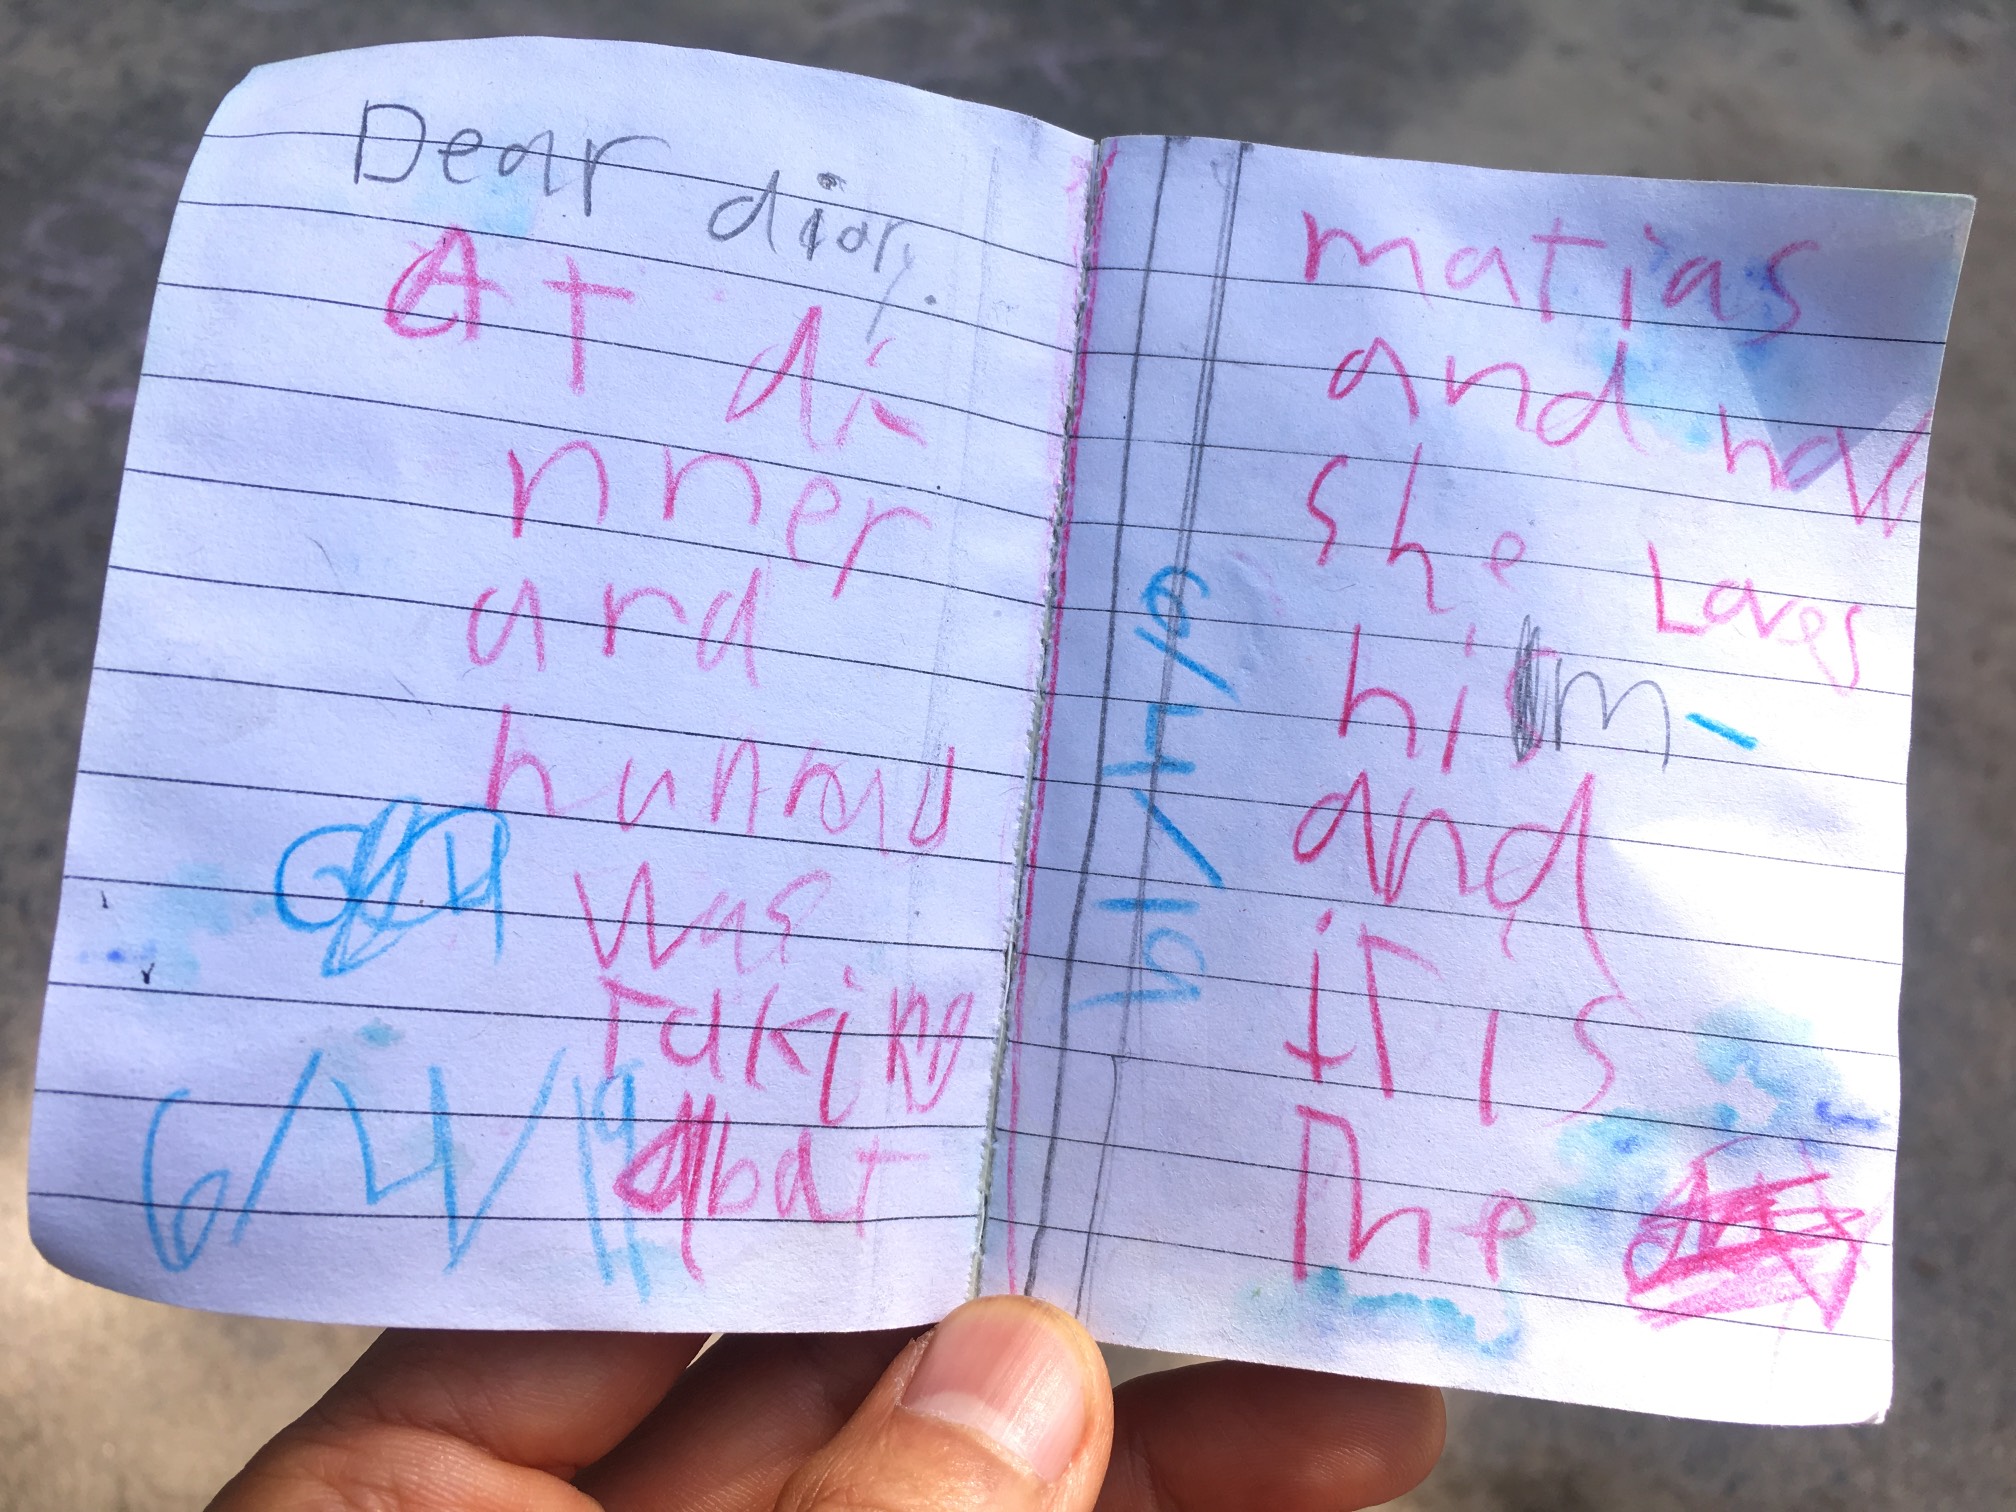 Dear diary.
At di-
nner
and
hunnau
was
Taking
abat
6/4/19
matias
and how
she Loves
him-
and
iT is
The
6/4/19